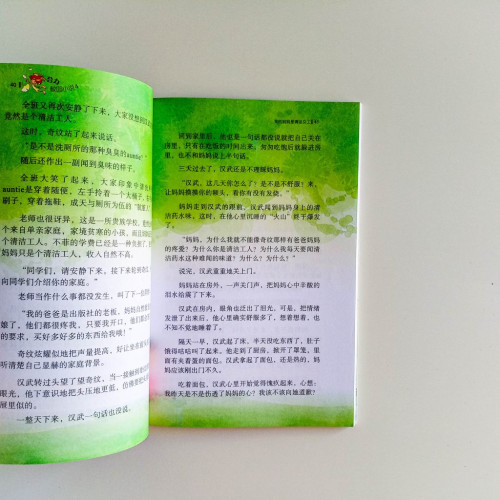 全班又再次安静了下来，大家没想到
竟然是个清洁工人。
这时，奇纹站了起来说话。
“是不是洗厕所的那种臭臭的auntie
随后还作出一副闻到臭味的样子。
全班大笑了起来，大家印象中
auntie是穿着随便，左手拎着一个大桶子，
刷子，穿着拖鞋，成天与厕所为伍的
老师也很讶异，这是一所贵族学校，
个来自单亲家庭，家境贫寒的小孩，而且
个清洁工人，不菲的学费已经是一种负担，
妈妈只是个清洁工人，收入自然不高。
“同学们，请安静下来，接下来
向同学们介绍你的家庭。”
老师当作什么事都没发生，叫了下一位
“我的爸爸是出版社的老板，妈妈
娘了，他们都很疼我，只要我开口，他们都
的要求，买好多好多的东西给我哦！”
奇纹炫耀似地把声量提高，好让
听清楚自己显赫的家庭背景。
汉武转过头望了望奇纹，当
眼光，他下意识地把头压地更低，仿佛
屈里似的。
一整天下来，汉武一句话也没说。
回到家里后，他更是一句话都没说就把自己关在
房里，只有在吃饭的时间出来，匆匆吃饱后就躲进房
里，也不和妈妈说上半句话。
三天过去了，汉武还是不理睬妈妈。
“汉武，这几天你怎么了？是不是不舒服？来，
让妈妈摸摸你的额头，看你有没有发烧。”
妈妈走到汉武的跟前，汉武闻到妈妈身上的清
洁药水味，这时，在他心里沉睡的“火山”终于爆发
了。
“妈妈，为什么我就不能像奇纹那样有爸爸妈妈
的疼爱？为什么你是清洁工人？为什么我每天要闻清
洁药水这种难闻的味道？为什么？为什么？”
说完，汉武重重地关上门。
妈妈站在房外，一声关门声，把妈妈心中辛酸的
泪水给震了下来。
汉武在房内，眼角也泛出了泪光，可是，把情绪
发泄了出来后，他心里确实舒服多了，想着想着，也
不知不觉地睡着了。
隔天一早，汉武起了床，半天没吃东西了，肚子
饿得咕咕叫了起来。他走到了厨房，掀开了罩笼，里
面有夹着蛋的面包，汉武拿起了面包，还是热的，妈妈
应该刚出门不久。
吃着面包，汉武心里开始觉得愧疚起来，心想：
我昨天是不是伤透了妈妈的心？我该不该向她道歉？